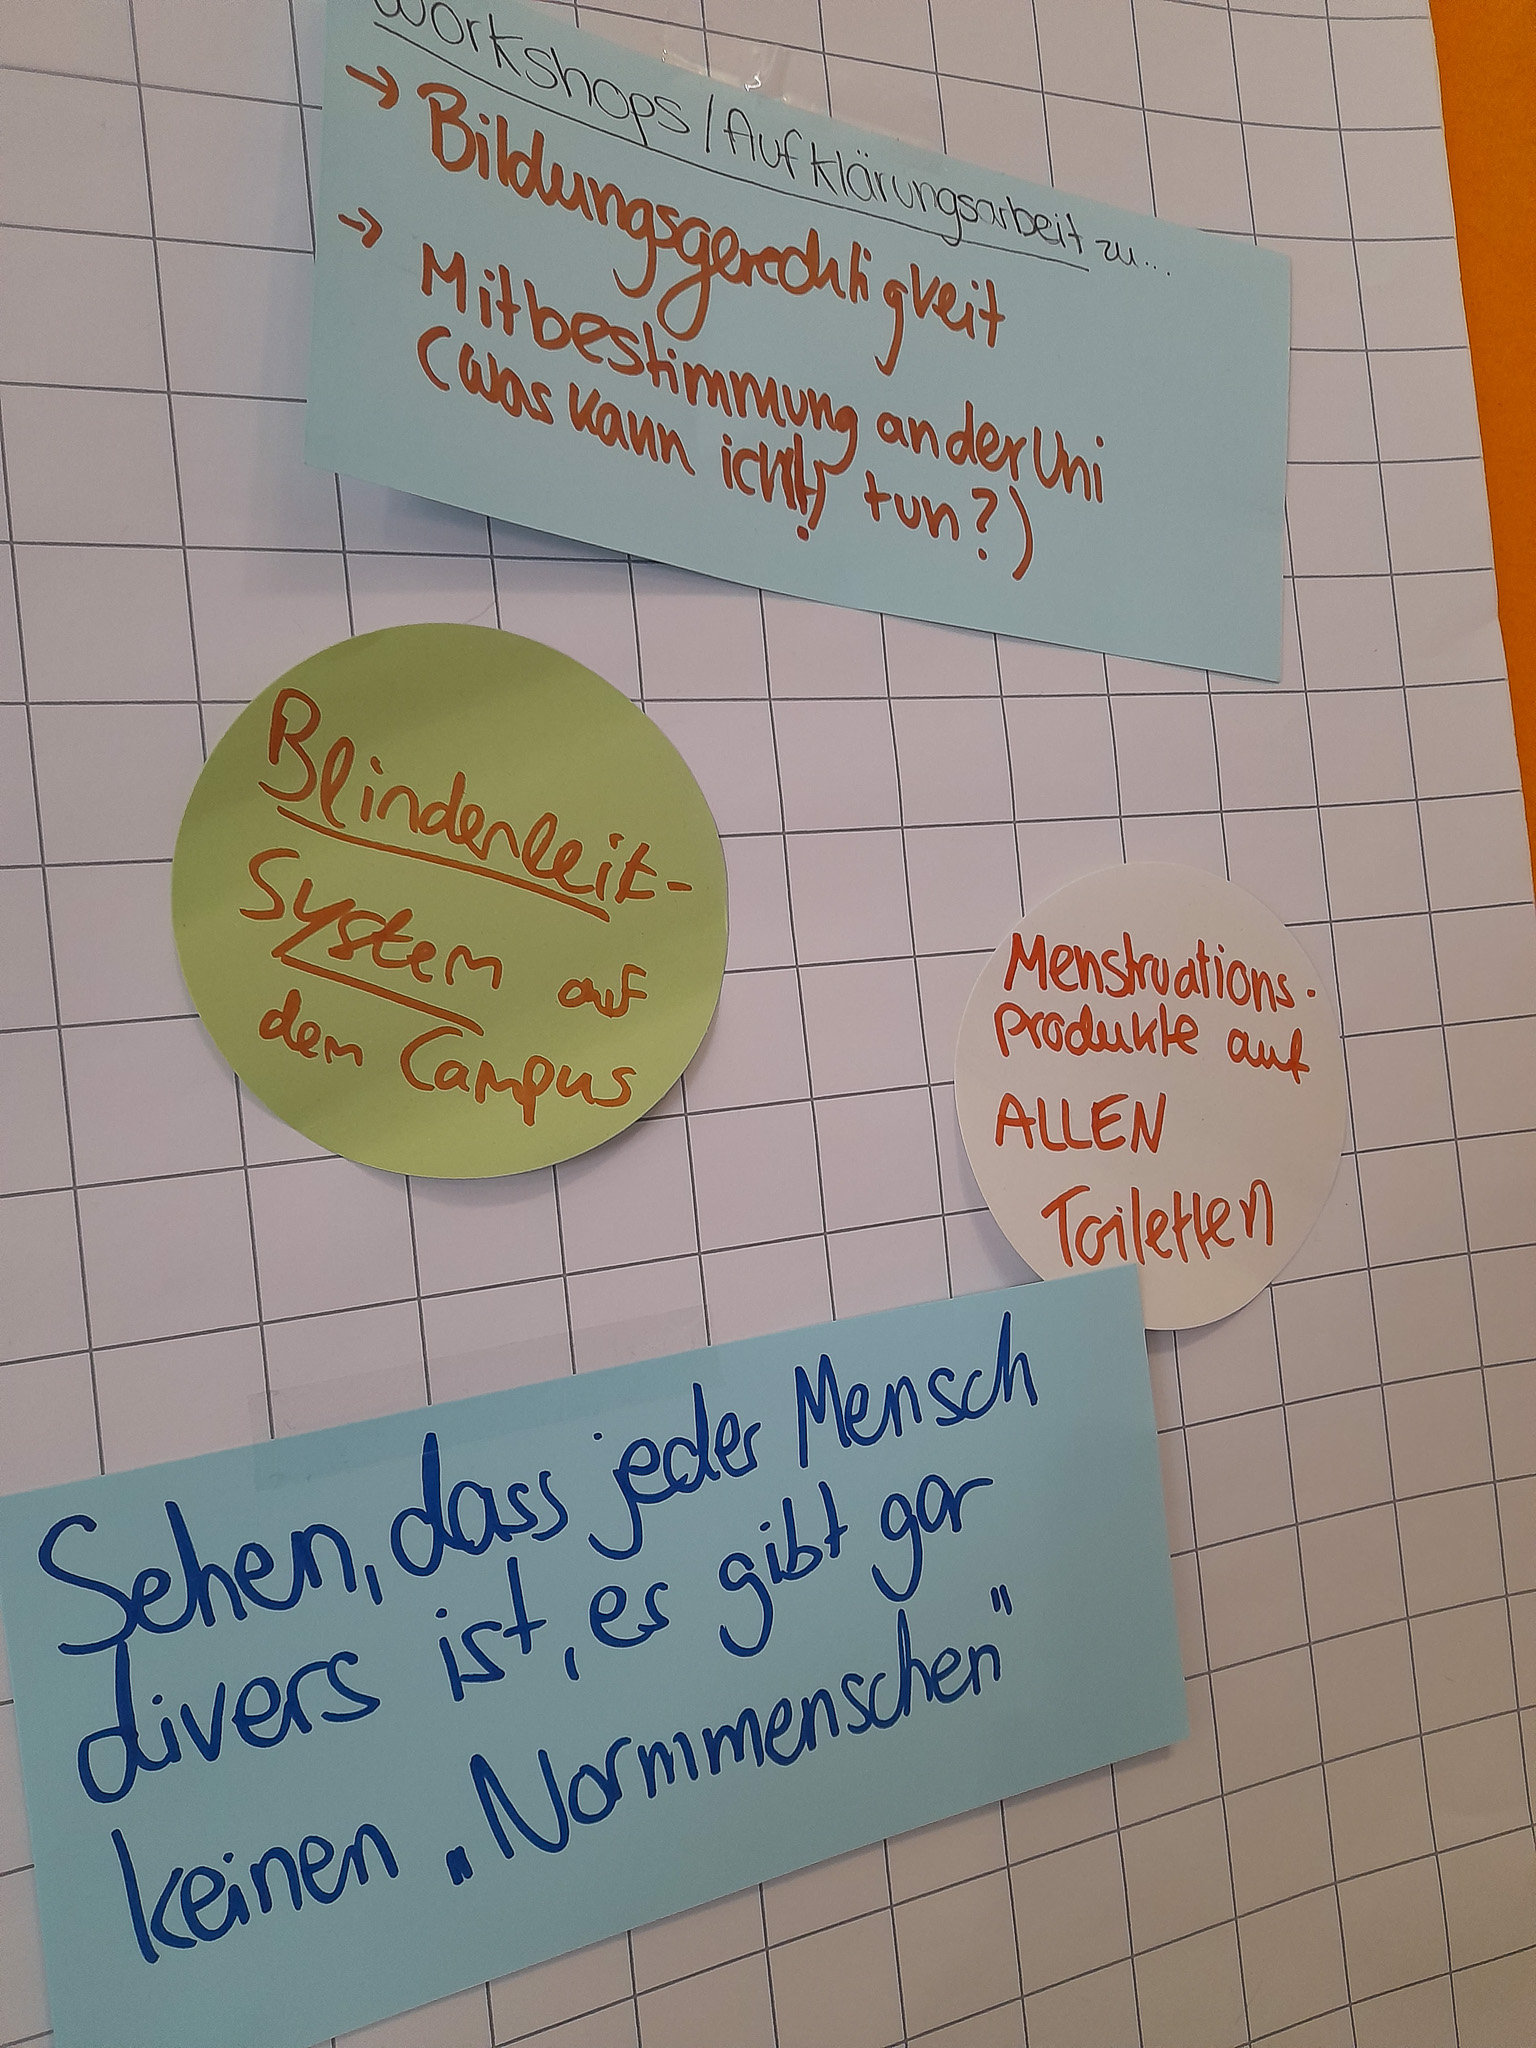 Workshops / Aufklärungsarbeit zu...
→ Bildungsgerechtigkeit
→ Mitbestimmung an der Uni
(Was kann ich tun?)
Blindenleit-
System auf
dem Campus
Menstruations-
produkte auf
ALLEN
Toiletten
Sehen, dass jeder Mensch
divers ist, es gibt gar
keinen „Normmenschen"